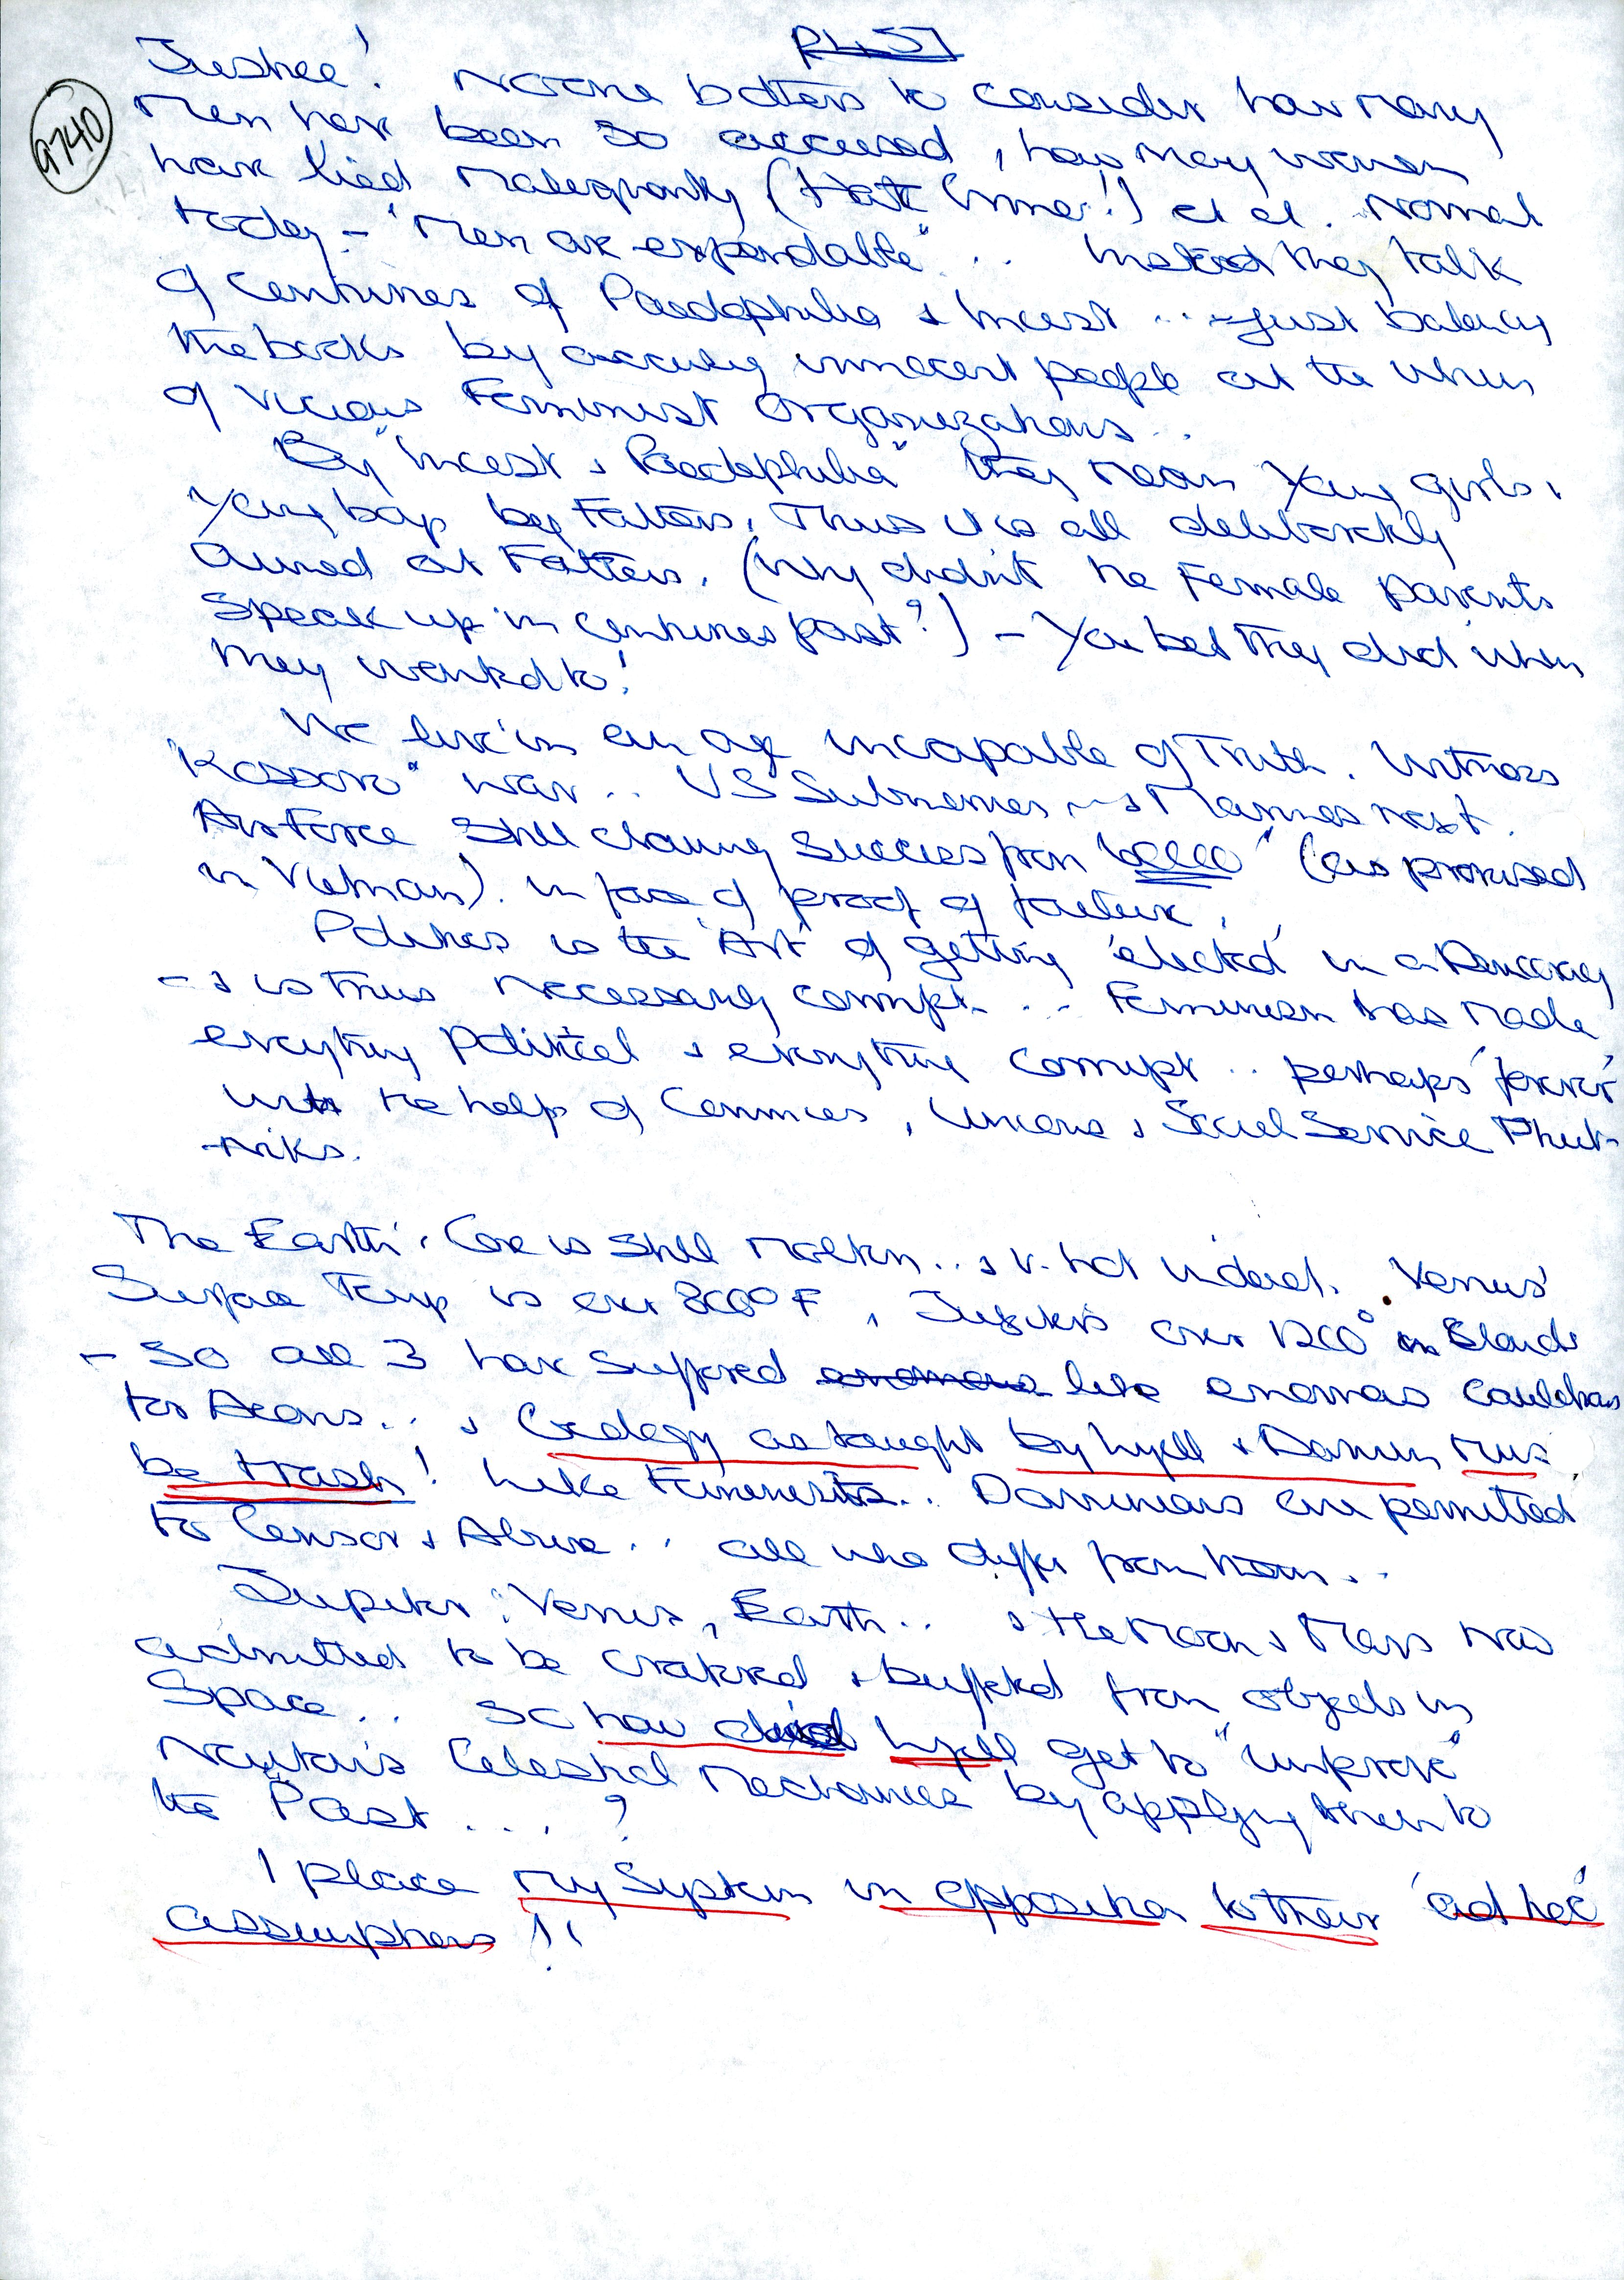 9740
Justice! Noone bothers to consider how many
Men have been so accused, how many women
have lied malignantly (Hate Crimes!) et al. Normal
today - "Men are expendable" ... Instead they talk
of Centuries of Paedophilia & Incest ... just balancing
the books by accusing innocent people at the whim
of vicious Feminist Organizations ..
By "Incest & Paedophilia" they mean Young girls,
young boys by Fathers. Thus it is all deliberately
aimed at Fathers. (Why didn't the Female parents
Speak up in Centuries past?) - You bet they did when
they wanted to!
We live in an age incapable of Truth. Witness
"Kosovo" war .. US Submarines & Marines next.
Air Force still claiming Success from (as promised
in Vietnam). in face of proof of failure.
Politics is the 'Art' of getting 'elected' in a Democracy
- & is thus necessarily corrupt ... Feminism has made
everything Political & everything corrupt .. perhaps 'forever'
with the help of Commies, Unions & Social Service
-niks.
The Earth's Core is still molten .. & v. hot indeed. Venus'
Surface Temp is over 800° F, Jupiter's over 1200° in
- So all 3 have suffered like enormous cauldrons
for Aeons .. & Geology as taught by Lyell & Darwin must
be trash! Like Feminists .. Darwinians are permitted
to Censor & Abuse .. all who differ from them ..
Jupiter, Venus, Earth .. & the Moon & Mars now
admitted to be cratered & buffeted from objects in
Space .. So how did Lyell get to "improve"
Newton's Celestial Mechanics by applying them to
the Past ....?
I place my System in opposition to their 'ad hoc'
assumptions!!